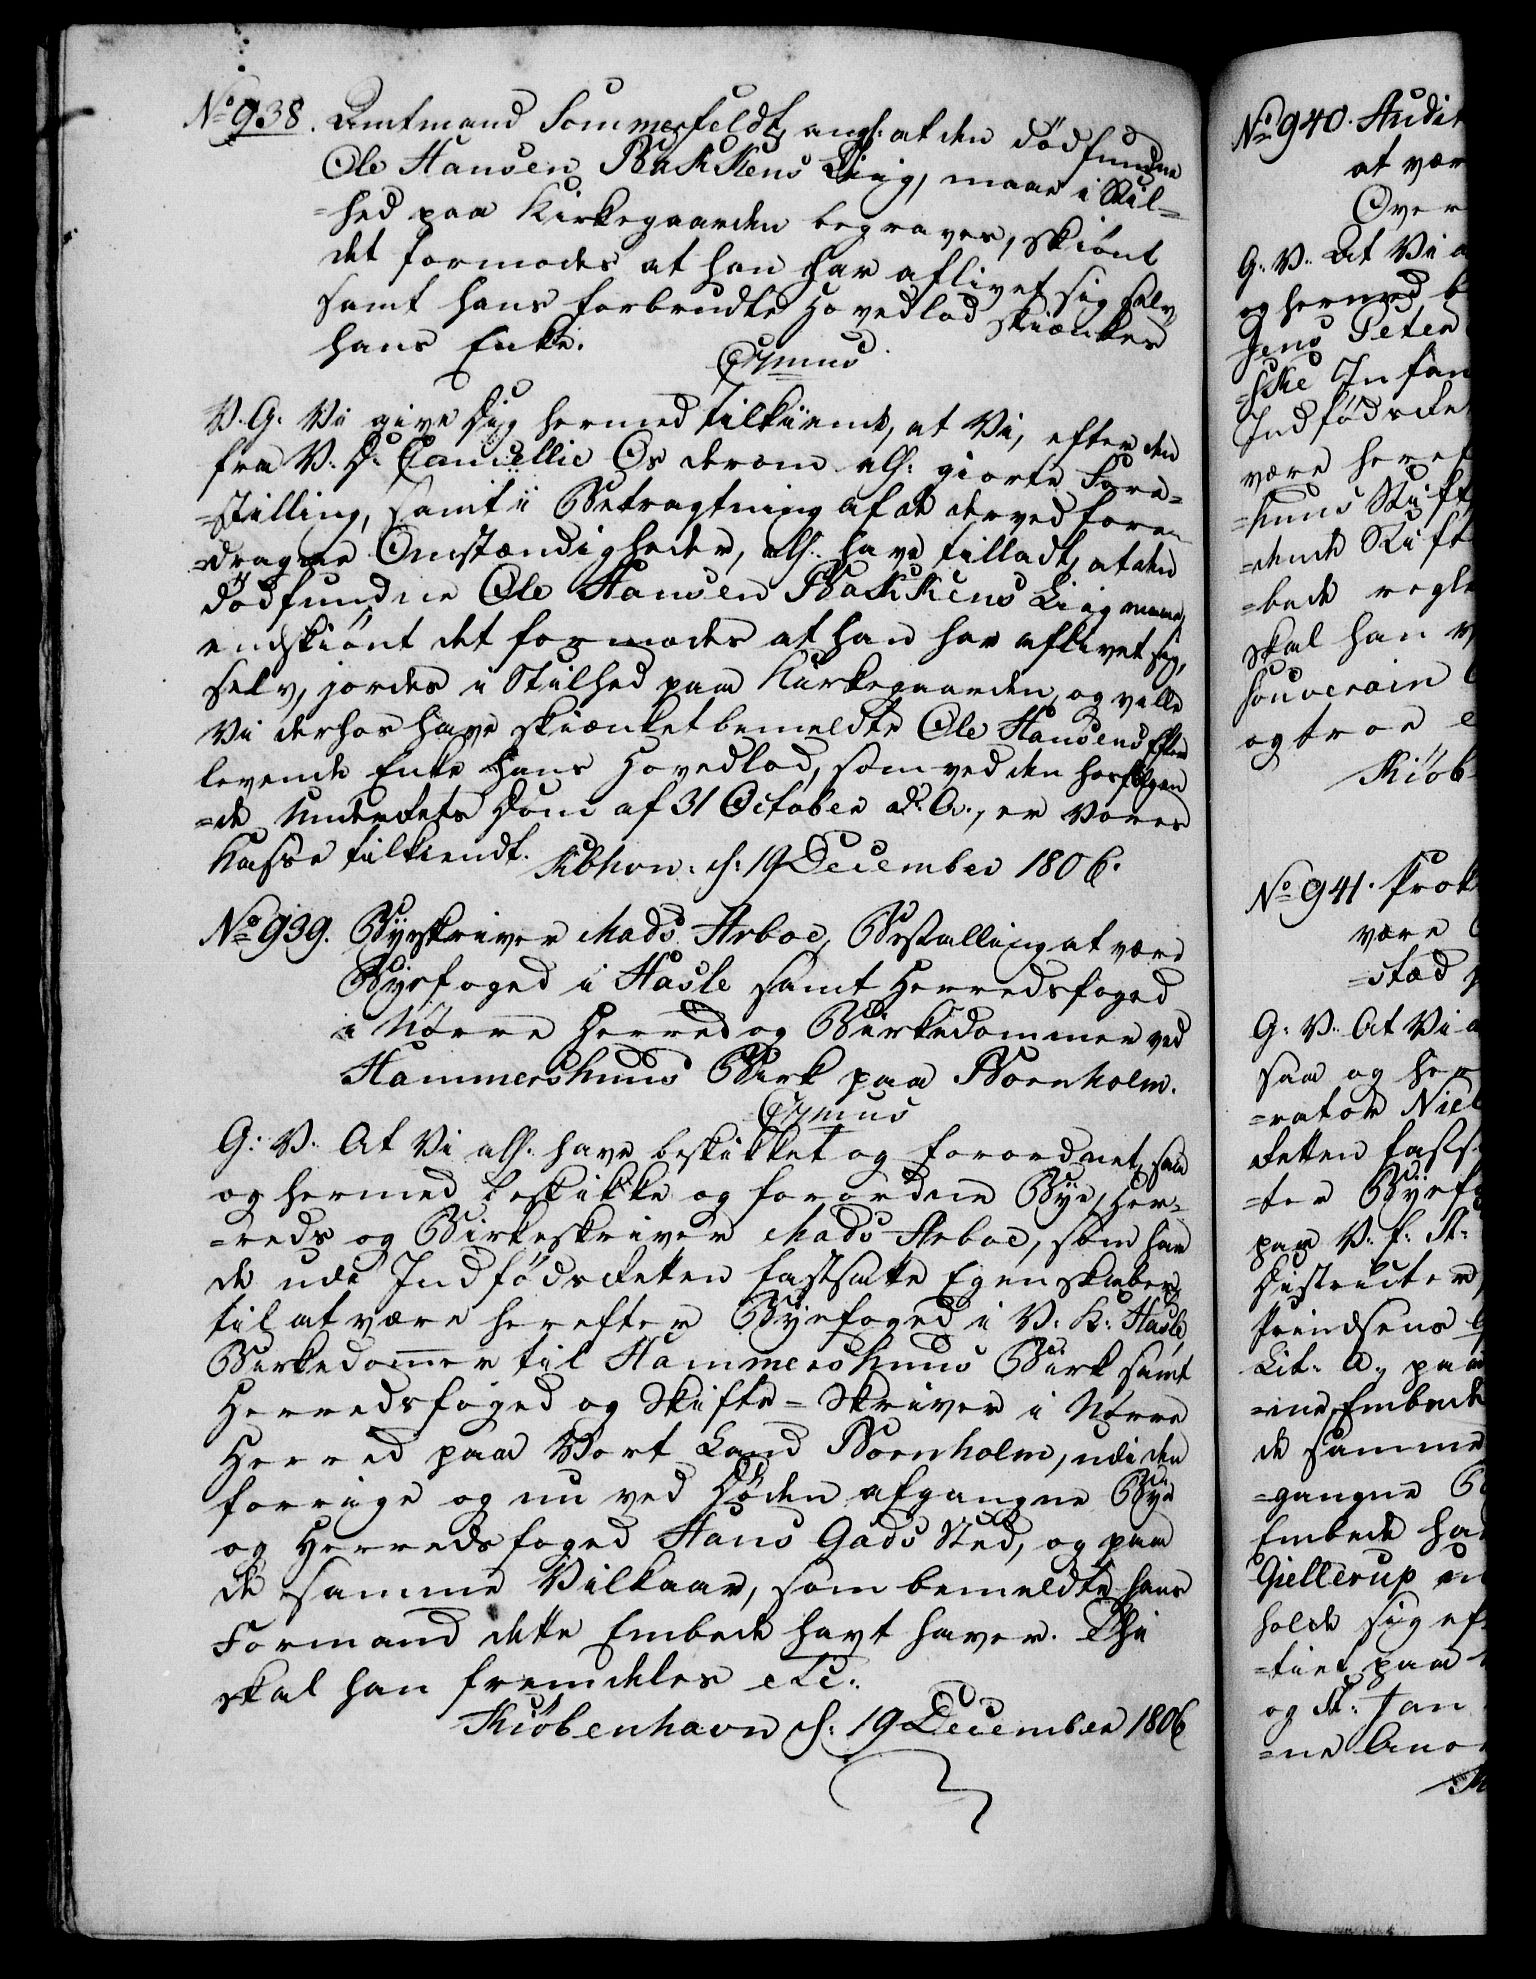 No 938. Amtmand Sommerfeldt, angl: at den dødfundne
Ole Hansen Bakkens Liig, maae i Stil=
=hed paa Kirkegaarden begraves, skiønt
det formodes at han har aflivet sig selv,
samt hans forbrudte Hovedlod skiænkes
hans Enke.
C7mus
V. G. Vi give Dig hermed tilkiende, at Vi, efter den
fra V. D. Cancellie Os derom all: giorte Fore=
=stilling, samt i Betragtning af de derved fore=
=dragne Omstændigheder, all: have tilladt, at den
dødfundne Ole Hansen Bakkens Liig maae,
endskiønt det formodes at han har aflivet sig
selv, jordes i Stilhed paa Kirkegaarden, og ville
Vi derhos have skiænket bemeldte Ole Hansens Efter
levende Enke hans Hovedlod, som ved den hosfølgen
=de Underrets Dom af 31 October d. A., er Vores
Kasse tilkiendt.
Kbhvn: d: 19 December 1806.
No 939. Byeskriver Mads Arboe, Bestalling at være
Byefoged i Hasle samt Herredsfoged
i Nörre Herred og Birkedommer ved
Hammershuus Birk paa Bornholm.
C7mus
G: V. At Vi all: have beskikket og forordnet, saa
og hermed beskikke og forordne Bye, Her=
=reds og Birkeskriver Mads Arboe, som har
de udi Indfødsretten fastsatte Egenskaber,
til at være herefter Byefoged i V. K: Hasle,
Birkedom̅er til Hammershuus Birk samt
Herredsfoged og Skifte=Skriver i Nörre
Herred paa Vort Land Bornholm, udi den
forrige og nu ved Döden afgangne Bye
og Herredsfoged Hans Gads Sted, og paa
de samme Vilkaar, som bemeldte hans
Formand dette Embede havt haver. Thi
skal han fremdeles etc:
Kiøbenhavn d: 19 December 1806
No 940. Audit
at vær
Over
G: V. At Vi a
og hermed b
Jens Peter
=ske Infan
Indfødsret
være heref
=huus Stift
=bede regle
skal han v
souverain
og troe e
Kiøb
No 941. Prok
være
=stæd
G: V. At Vi a
saa og her
=rator Niel
retten fasts
=ter Byefo
paa V. f. A:
Districter
Prindsens
Lit: A, paa
=ine Embede
de samme
=gangne B
Embede hav
Giellerup en
holde sig ef
=tiet paa
og d: Jan
=ne Ano